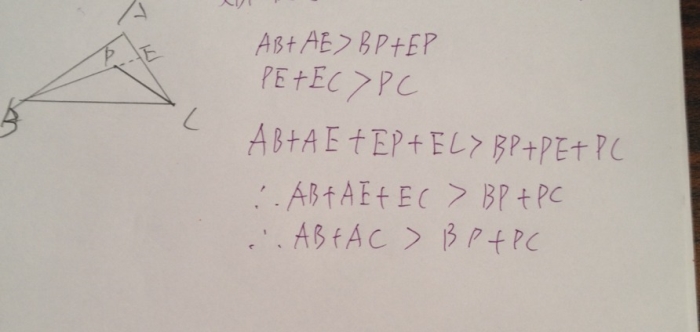 A
P E
B C
AB+AE>BP+EP
PE+EC>PC
AB+AE+EP+EC>BP+PE+PC
∴AB+AE+EC>BP+PC
∴AB+AC>BP+PC